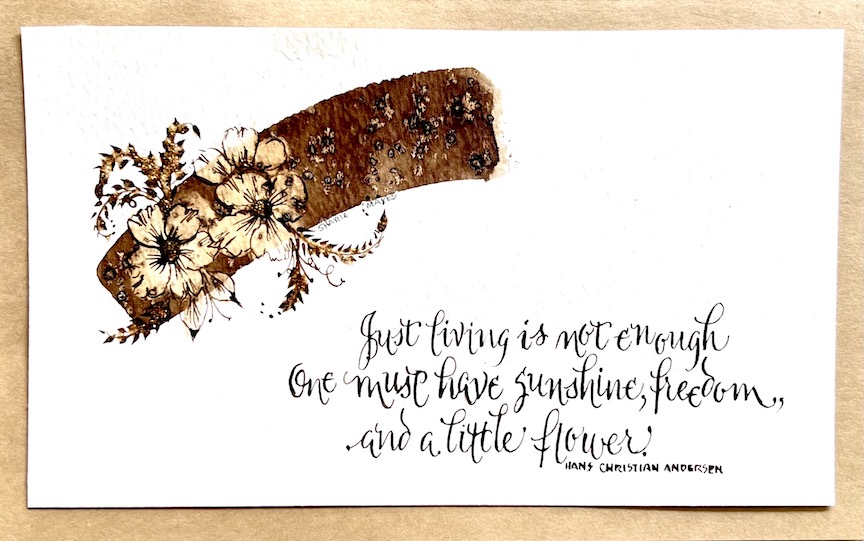 SHARIE MAYES
Just living is not enough
One must have sunshine, freedom,,
and a little flower.
HANS CHRISTIAN ANDERSEN